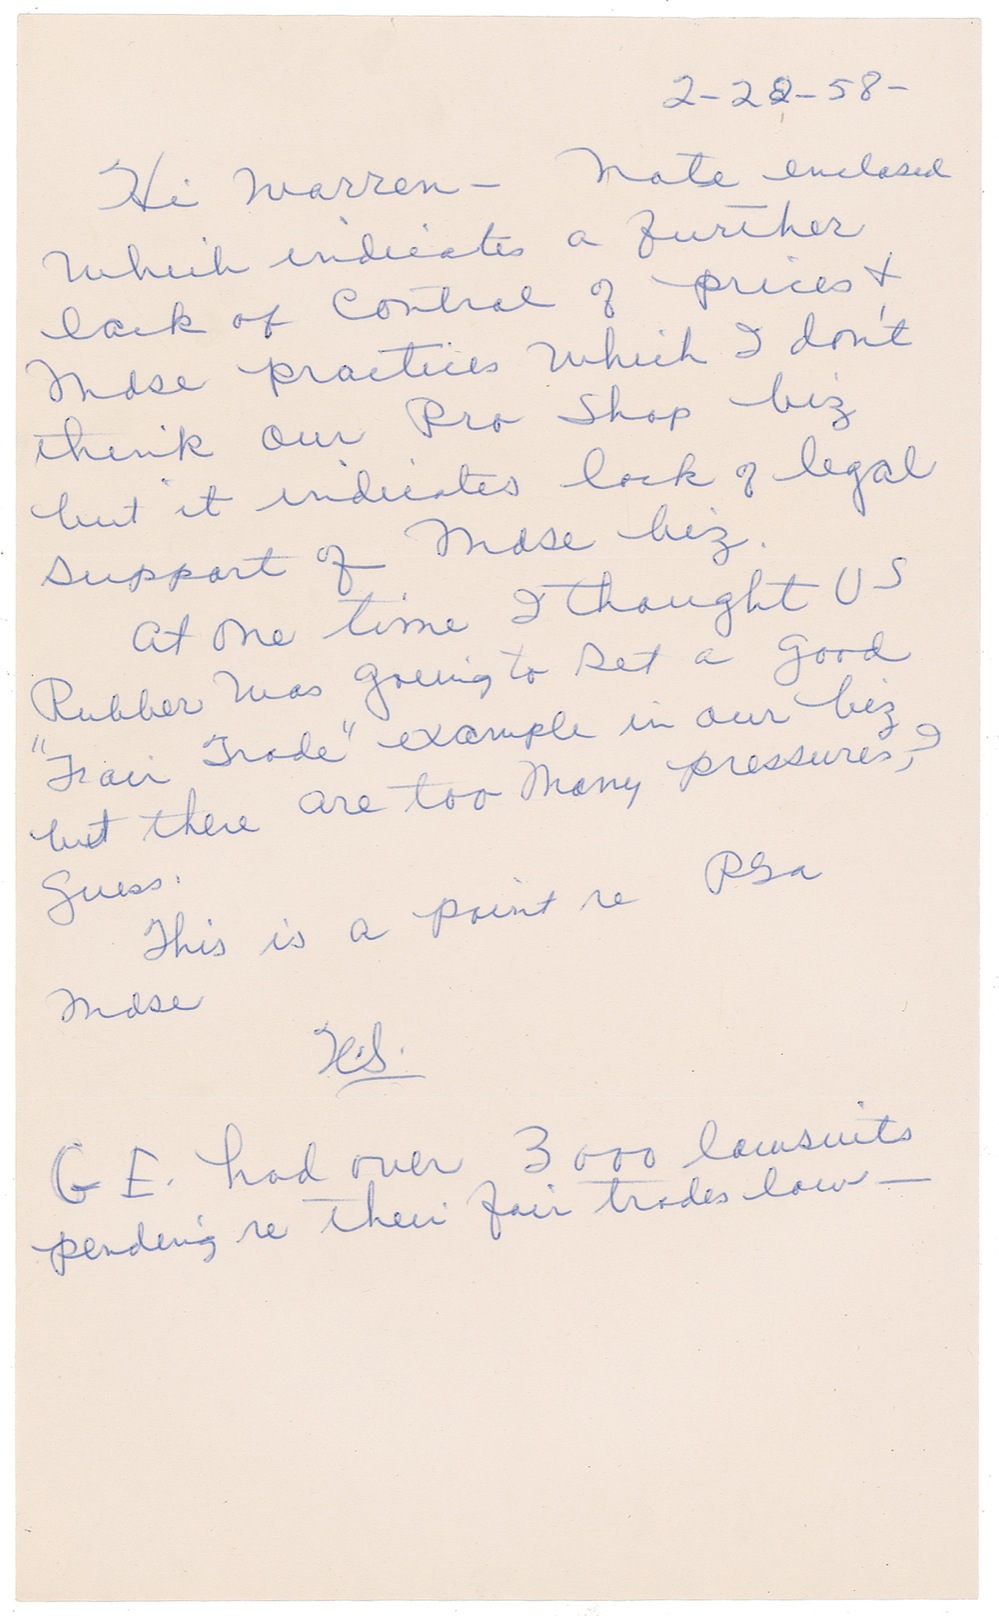 2-28-58-
Hi Warren - Note enclosed
which indicates a further
lack of control of prices &
Mdse practices which I don't
think our Pro Shop biz
but it indicates lack of legal
support of Mdse biz.
At one time I thought US
Rubber was going to set a good
"Fair Trade" example in our biz
but there are too many pressures, I
guess.
This is a point re PGA
Mdse
H.S.
G E. had over 3000 lawsuits
pending re their fair trades law -